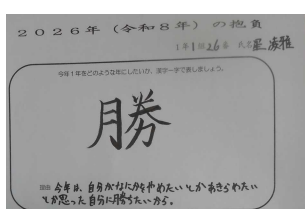 2026年（令和8年）の抱負
1年1組26番 氏名 凌雅
今年1年をどのような年にしたいか、漢字一字で表しましょう。
勝
理由 今年は、自分がなにかをやめたいとかあきらめたい
とか思った自分に勝ちたいから。